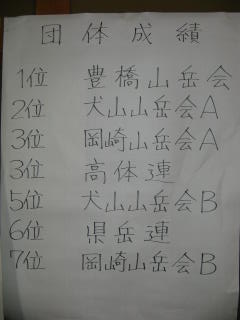 団体成績
1位 豊橋山岳会
2位 犬山山岳会A
3位 岡崎山岳会A
3位 高体連
5位 犬山山岳会B
6位 県岳連
7位 岡崎山岳会B